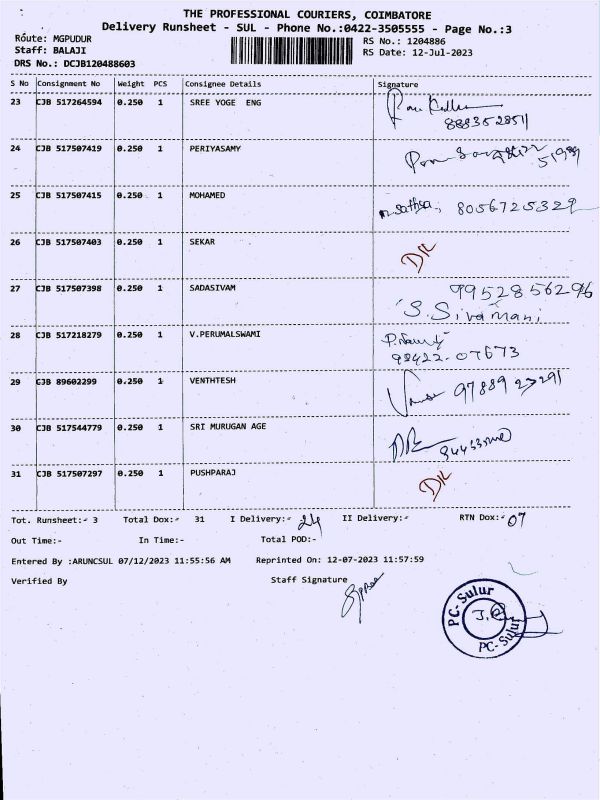 THE PROFESSIONAL COURIERS, COIMBATORE
Delivery Runsheet - SUL - Phone No.:0422-3505555 - Page No.:3
Route: MGPUDUR RS No.: 1204886
Staff: BALAJI RS Date: 12-Jul-2023
DRS No.: DCJB120488603
S No Consignment No Weight PCS Consignee Details Signature
23 CJB 517264594 0.250 1 SREE YOGE ENG
24 CJB 517507419 0.250 1 PERIYASAMY
25 CJB 517507415 0.250 1 MOHAMED 8056725329
26 CJB 517507403 0.250 1 SEKAR
27 CJB 517507398 0.250 1 SADASIVAM 9952856296
S. Sivamani
28 CJB 517218279 0.250 1 V.PERUMALSWAMI
99422-07673
29 CJB 89602299 0.250 1 VENTHTESH
30 CJB 517544779 0.250 1 SRI MURUGAN AGE
31 CJB 517507297 0.250 1 PUSHPARAJ
Tot. Runsheet:- 3 Total Dox:- 31 I Delivery:- 24 II Delivery:- RTN Dox:- 07
Out Time:- In Time:- Total POD:-
Entered By :ARUNCSUL 07/12/2023 11:55:56 AM Reprinted On: 12-07-2023 11:57:59
Verified By Staff Signature
PC-Sulur
PC-Sulur